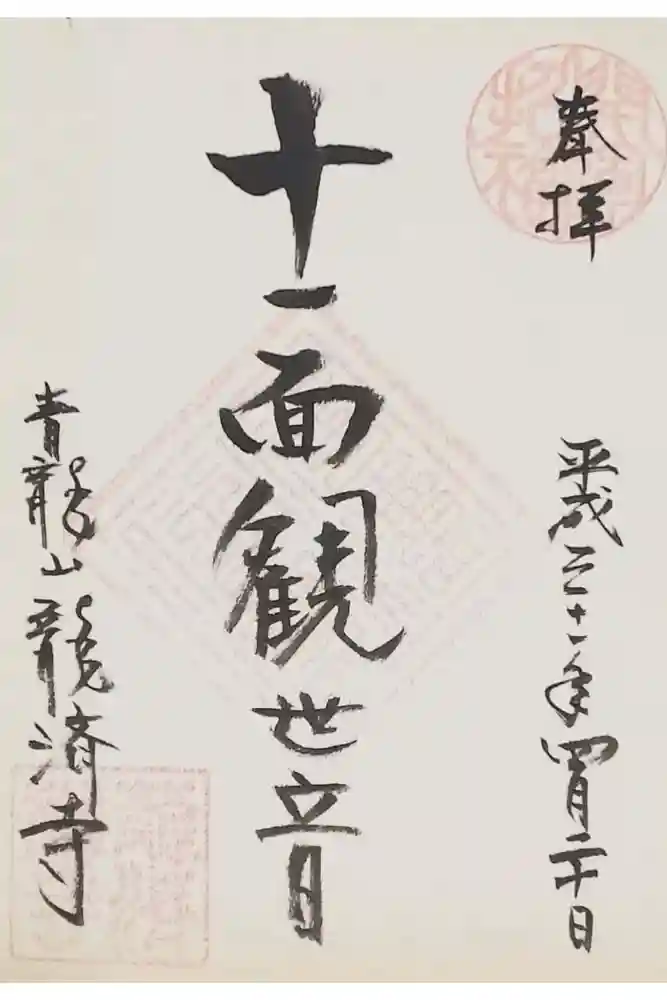 奉拝
平成三十一年四月二十日
十一面観世音
青龍山龍済寺